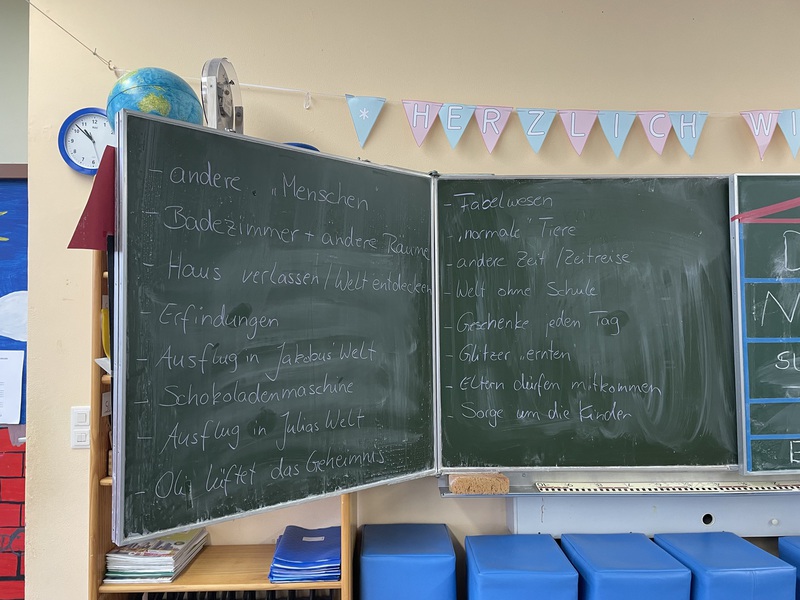 * HERZLICH WI
- andere "Menschen"
- Badezimmer + andere Räume
- Haus verlassen / Welt entdecken
- Erfindungen
- Ausflug in Jakobus' Welt
- Schokoladenmaschine
- Ausflug in Julias Welt
- Oli lüftet das Geheimnis
- Fabelwesen
- "normale" Tiere
- andere Zeit / Zeitreise
- Welt ohne Schule
- Geschenke jeden Tag
- Glitzer "ernten"
- Eltern dürfen mitkommen
- Sorge um die Kinder
D
N
SU
E